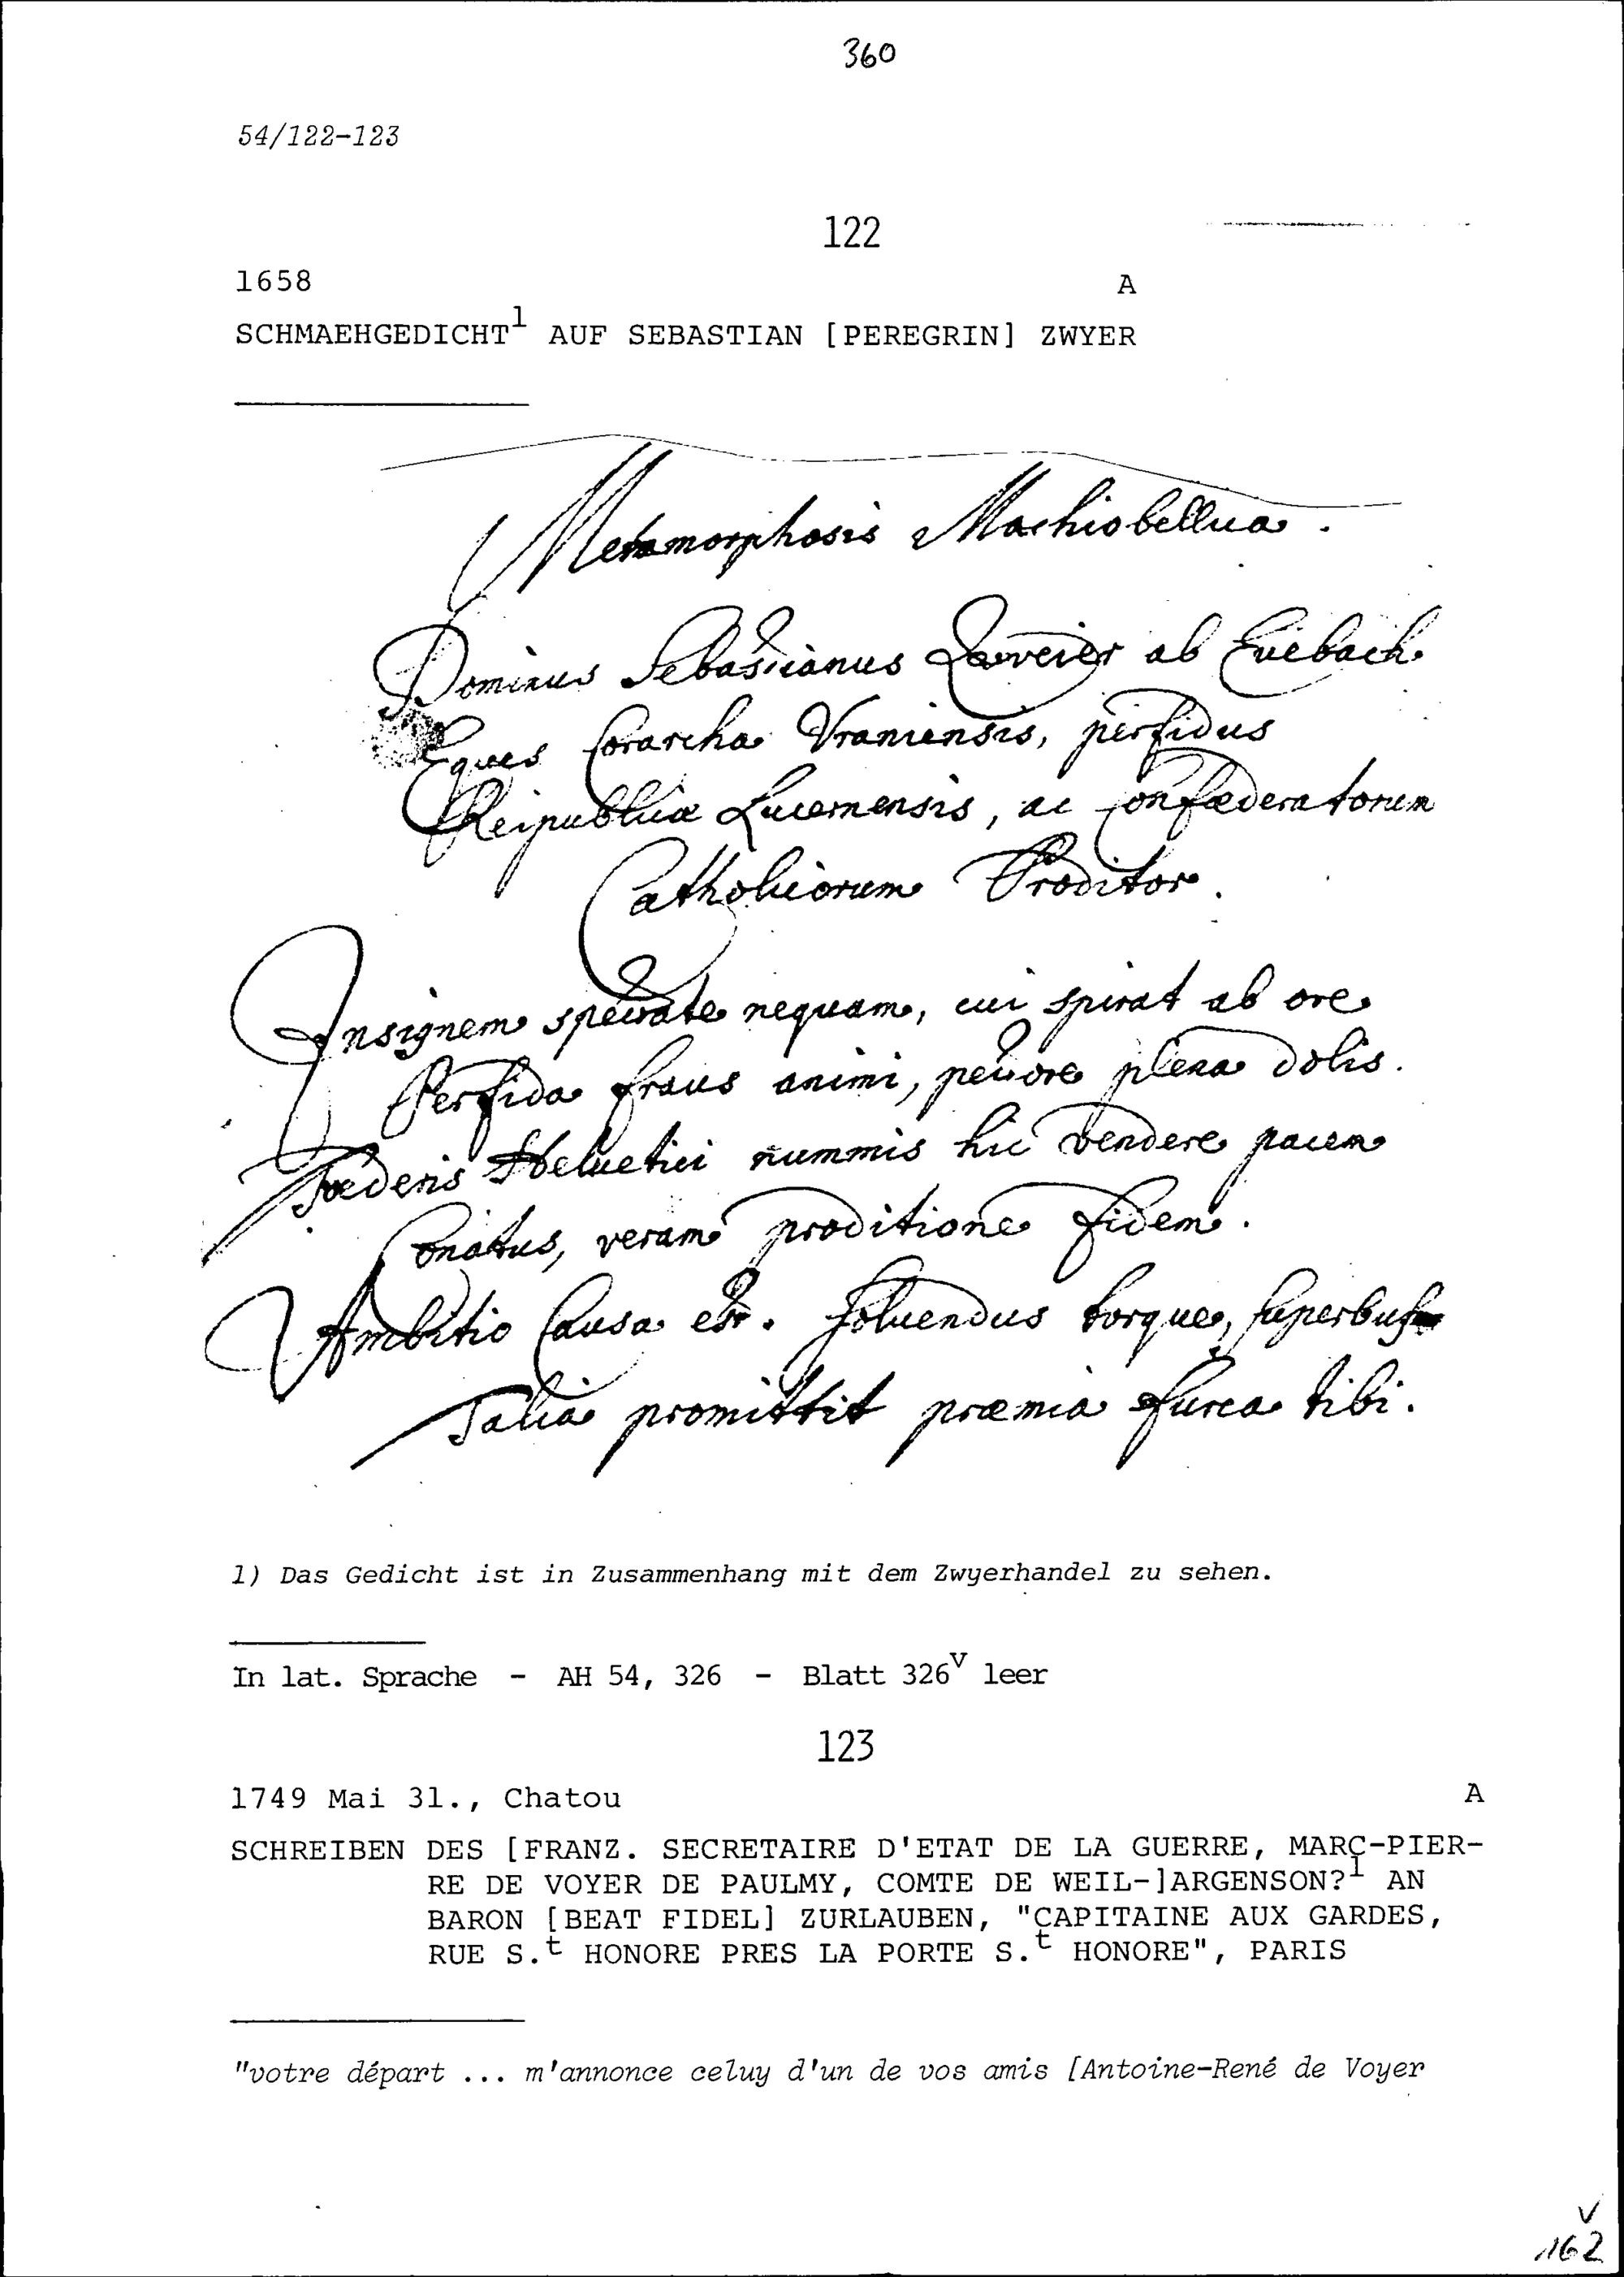 360
54/122-123
122
1658 A
SCHMAEHGEDICHT1 AUF SEBASTIAN [PEREGRIN] ZWYER
Metamorphosis Machiobellua.
Dominus Sebastianus Zweier ab Euebach
Eques Corarcha Vraniensis, perfidus
Reipublicæ Lucernensis, ac Confæderatorum
Catholicorum Proditor.
Insignem spectate nequam, cui spirat ab ore
Perfida fraus animi, pectore plena dolis.
Fœderis Helvetici nummis hic vendere pacem
Conatus, veram proditione fidem.
Ambitio Causa est. Soluendus torque, superbus
Talia promittit præmia furca tibi.
1) Das Gedicht ist in Zusammenhang mit dem Zwyerhandel zu sehen.
In lat. Sprache - AH 54, 326 - Blatt 326v leer
123
1749 Mai 31., Chatou A
SCHREIBEN DES [FRANZ. SECRETAIRE D'ETAT DE LA GUERRE, MARC-PIER-
RE DE VOYER DE PAULMY, COMTE DE WEIL-]ARGENSON?1 AN
BARON [BEAT FIDEL] ZURLAUBEN, "CAPITAINE AUX GARDES,
RUE S.t HONORE PRES LA PORTE S.t HONORE", PARIS
"votre départ ... m'annonce celuy d'un de vos amis [Antoine-René de Voyer
V
162